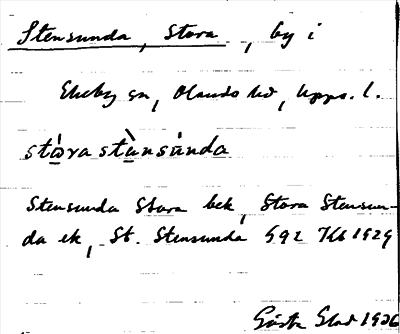 Stensunda, Stora, by i
Ekeby sn, Olands hd, Upps. l.
stò̤ra stè̤nsúnda
Stensunda Stora bek, Stora Stensun-
da ek, St. Stensunda GS2 Kbl 1929
Gösta 1926